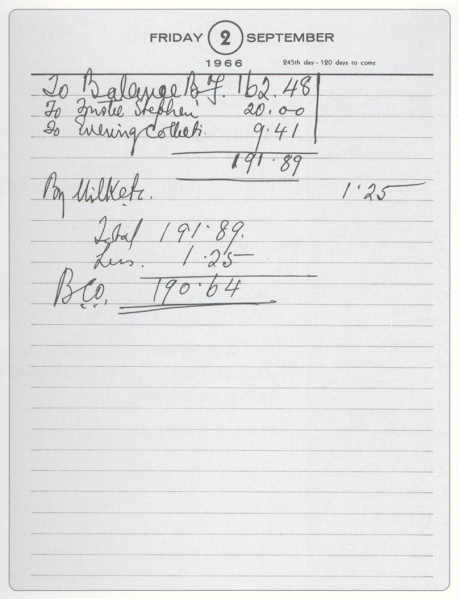 FRIDAY 2 SEPTEMBER
1966 245th day - 120 days to come
To Balance B F. 162.48
To Trustee Stephen 20.00
To Evening Collect. 9.41
191.89
By Milk etc. 1.25
Total 191.89.
Less. 1.25
B Co. 190.64